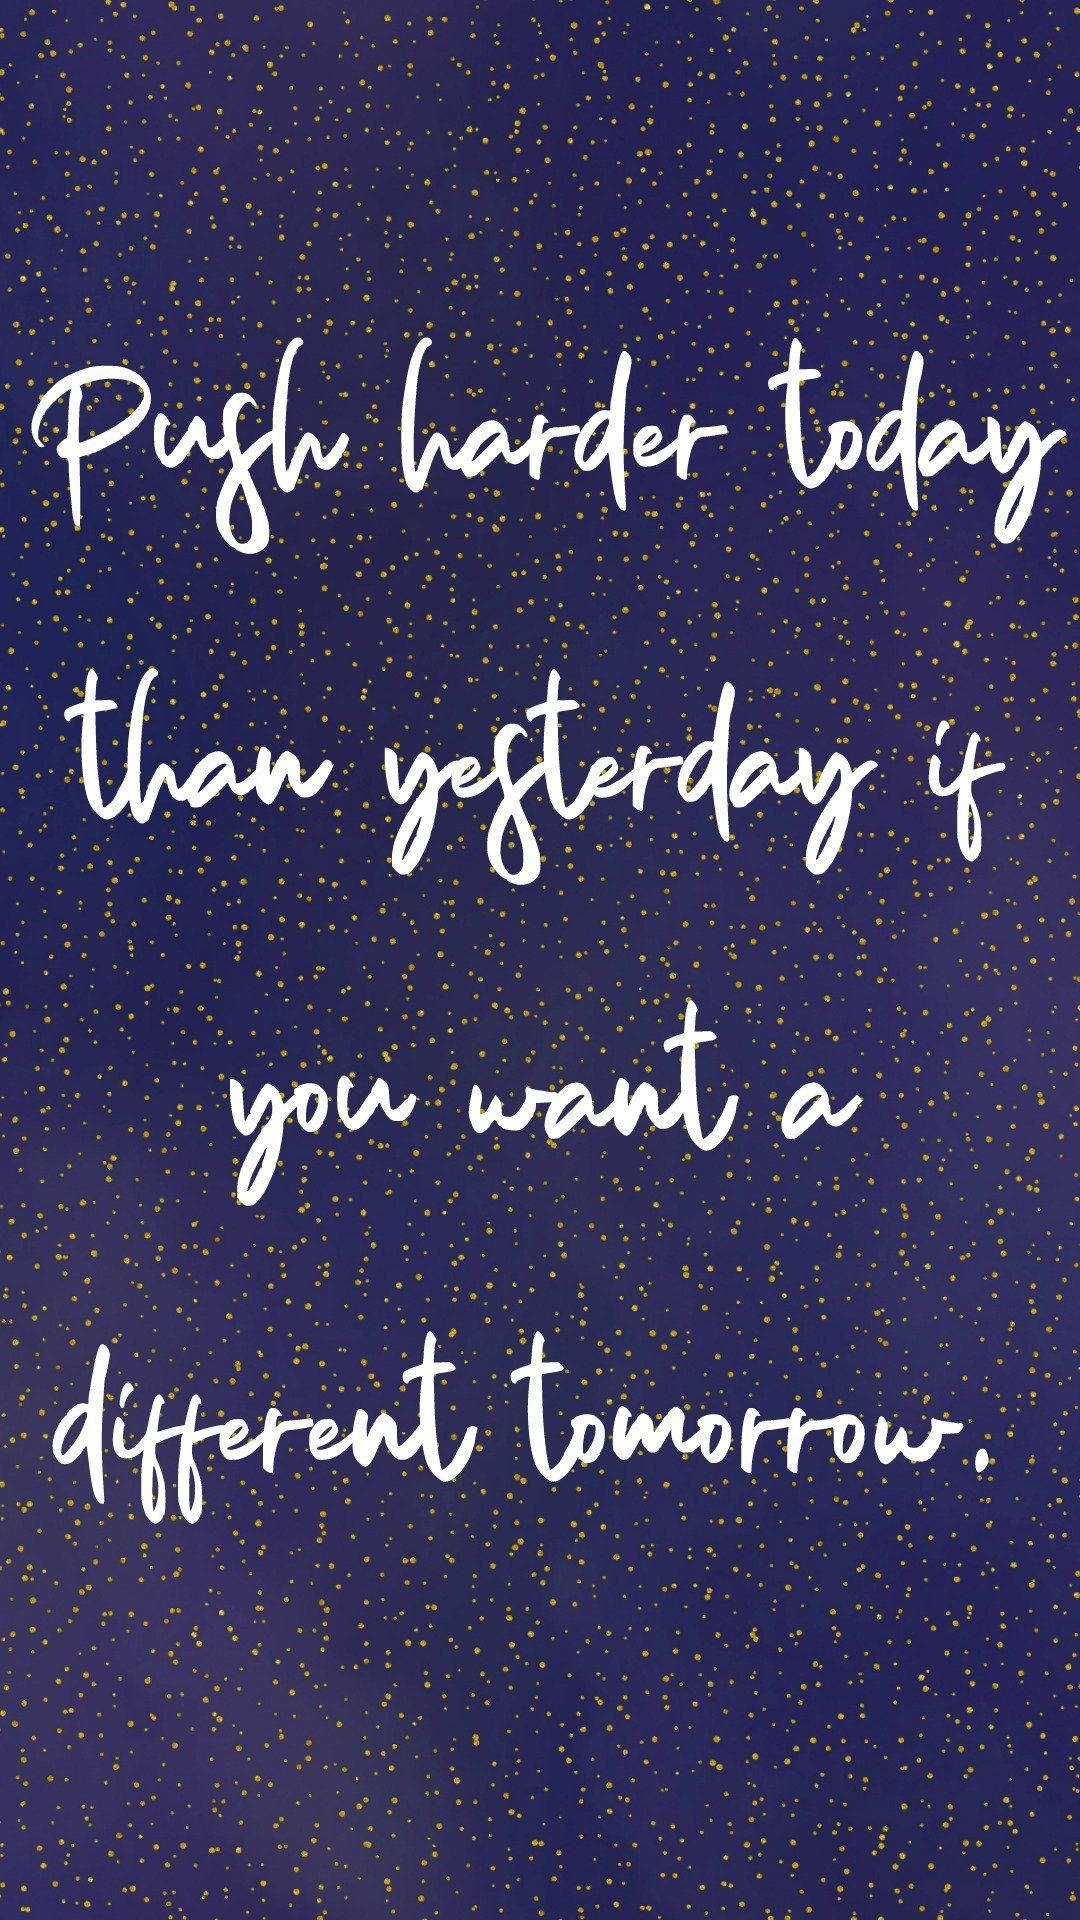 Push harder today
than yesterday if
you want a
different tomorrow.